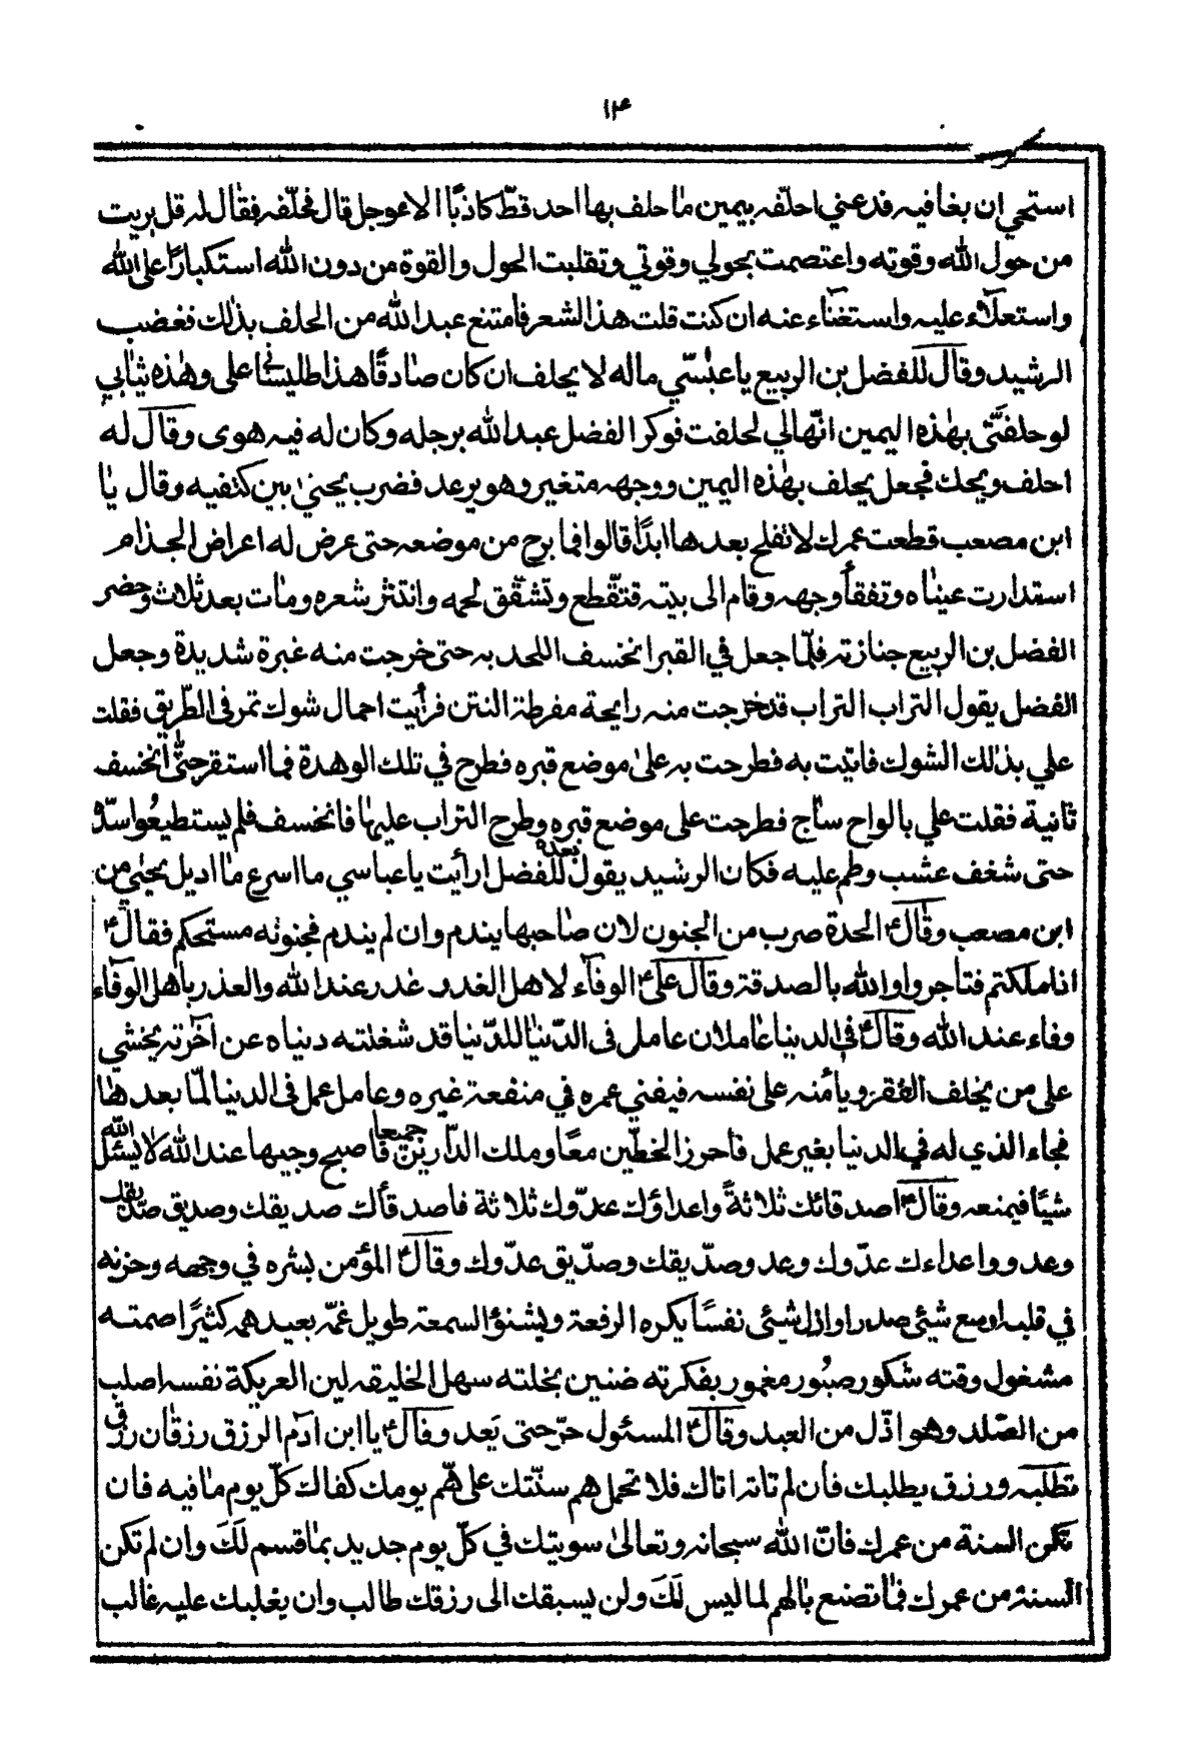 ١٣
استحي ان يعافيه فدعني احلّفه بيمين ما حلف بها احد قطّ كاذبًا الا عوجل قال فحلّفه فقال له قل بريت
من حول الله وقوته واعتصمت بحولي وقوتي وتقلبت الحول والقوة من دون الله استكبارًا على الله
واستعلآء عليه واستغنآء عنه ان كنت قلت هذا الشعر فامتنع عبد الله من الحلف بذلك فغضب
الرشيد وقال للفضل بن الربيع يا عباسّي ماله لا يحلف ان كان صادقًا هذا طليسانا على وهذه ثيابي
لو حلفتّى بهذه اليمين انّهالي لحلفت فوكز الفضل عبد الله برجله وكان له فيه هوى وقال له
احلف ويحك فجعل يحلف بهذه اليمين ووجهه متغير وهو يرعد فضرب يحيى بين كتفيه وقال يا
ابن مصعب قطعت عمرك لا تفلح بعدها ابدًا قالوا فما برح من موضعه حتى عرض له اعراض الجذام
استدارت عيناه وتفقأ وجهه وقام الى بيته فتقّطع وتشقّق لحمه وانتثر شعره ومات بعد ثلاث وحضر
الفضل بن الربيع جنازته فلمّا جعل في القبر انخسف اللحد به حتى خرجت منه غبرة شديدة وجعل
الفضل يقول التراب التراب قد خرجت منه رايحة مفرطة النتن فرأيت احمال شوك تمر في الطّريق فقلت
علي بذلك الشوك فاتيت به فطرحت به على موضع قبره فطرح في تلك الوهدة فما استقر حتّى انخسف
ثانية فقلت علي بالواح ساج فطرحت على موضع قبره وطرح التراب عليها فانخسف فلم يستطيعوا سدّه
حتى شغف عشب وطم عليه فكان الرشيد يقول بعده للفضل ارأيت يا عباسي ما اسرع ما اديل يحيى من
ابن مصعب وقال ع الحدة ضرب من الجنون لان صاحبها يندم وان لم يندم فجنونه مستحكم فقال ع
اذا ملكتم فتاجروا والله بالصدقة وقال علي ع الوفآء لاهل الغدر غدر عند الله والغدر باهل الوفاء
وفاء عند الله وقال ع في الدنيا عاملان عامل في الدّنيا للدّنيا قد شغلته دنياه عن آخرته يخشي
على من يخلف الفقر ويأمنه على نفسه فيفني عمره في منفعة غيره وعامل عمل في الدنيا لمّا بعدها
فجاء الذي له في الدنيا بغير عمل فاحرز الحظّين معًا وملك الدّارين جميعا فاصبح وجيها عند الله لا يسئل الله
شيئًا فيمنعه وقال ع اصدقائك ثلاثةً واعداؤك عدّوك ثلاثة فاصدقائك صديقك وصديق صديقك
وعدو واعداءك عدّوك وعدو صدّيقك وصدّيق عدّوك وقال ع المؤمن بشره في وجهه وحزنه
في قلبه اوسع شيئى صدرا واذل شيئى نفسًا يكره الرفعة ويشنؤ السمعة طويل غمّه بعيد همه كثيرًا صمته
مشغول وقته شكور صبُور مغمور بفكرته ضنين بخلته سهل الخليقه لين العريكة نفسه اصلب
من الصّلد وهو اذّل من العبد وقال ع المسئول حرّ حتى يَعد وقال ع يا ابن آدم الرزق رزقان رزق
تطلبه ورزق يطلبك فأن لم تاته اتاك فلا تحمل هم سنّتك على هّم يومك كفاك كلّ يوم ما فيه فان
تكن السنة من عمرك فانّ الله سبحانه وتعالى سويتيك في كلّ يوم جديد بما قسم لكَ وان لم تكن
السنة من عمرك فما تصنع بالهم لما ليس لكَ ولن يسبقك الى رزقك طالب وان يغلبك عليه غالب